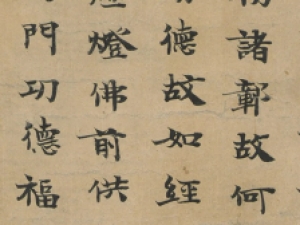 諸鄣故何
德故如經
燈佛前供
門功德福